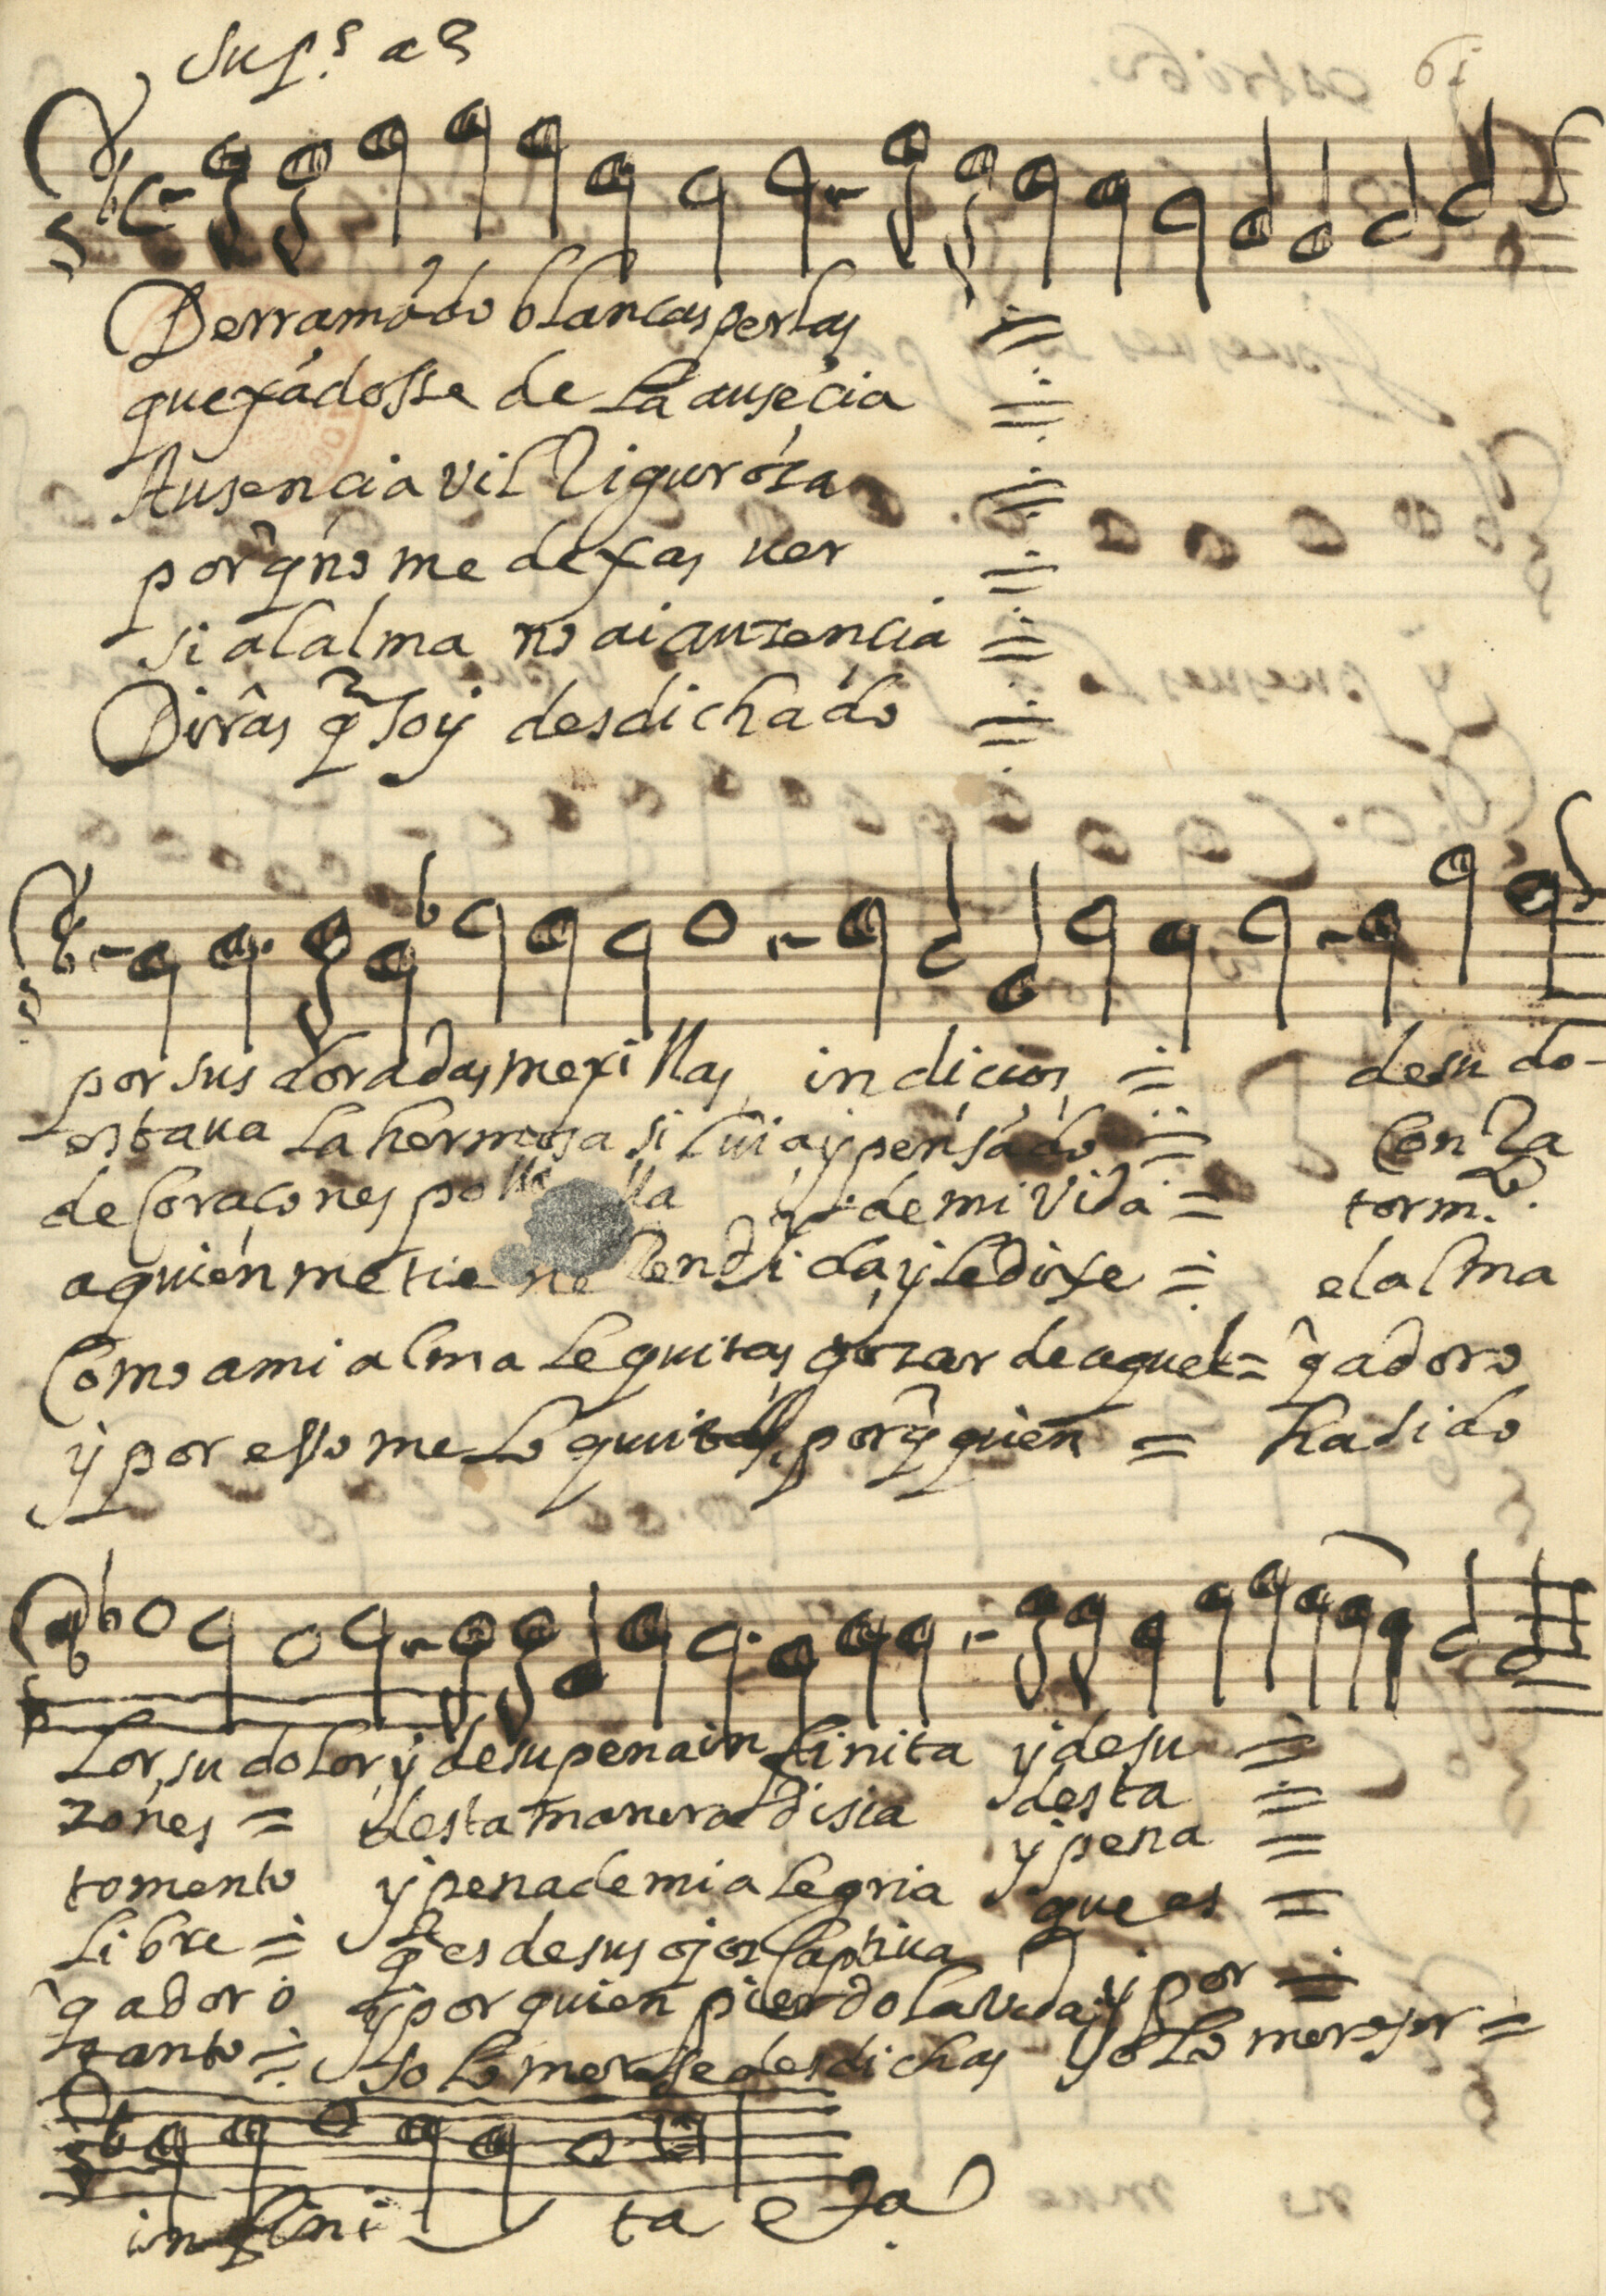 Sup.º a 3
61
Derramãdo blancas perlas =
quexãdosse de la ausẽcia =
Ausencia vil Rigurosa =
porq̃ no me dexas ver =
si al alma no ai auzencia =
Dirâs q̃ soy desdichado =
por sus doradas mexillas, indicios = de su do-
estaua la hermosa siluia y pensado = Con Ra
de Coraçones po lla de mi vida = torm.to
a quien me tiene Rendida, y le dixe = el alma
Como a mi alma le quitas gozar de aquel = q̃ adoro
y por esso me lo quitas, porq̃ quien = ha sido
lor, su dolor y de su pena infinita y de su =
zones = desta manera disia desta =
tomento y pena de mi alegria y pena =
libre = q̃ es de sus ojos captiua que es =
q̃ adoro y por quien pierdo la vida y por =
tanto = solo merese desdichas solo mereser =
infini ta